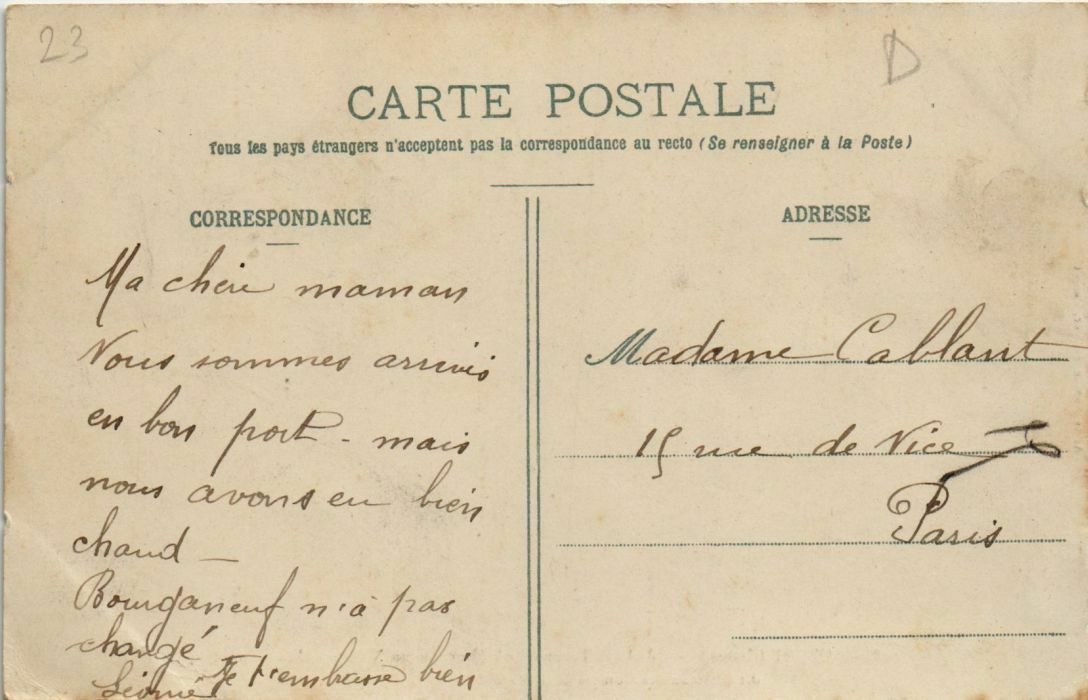 23
D
CARTE POSTALE
Tous les pays étrangers n'acceptent pas la correspondance au recto (Se renseigner à la Poste)
CORRESPONDANCE
Ma chère maman
Nous sommes arrivés
en bon port - mais
nous avons eu bien
chaud —
Bourganeuf n'à pas
changé
Je t'embasse bien
Léonie
ADRESSE
Madame Cablant
15 rue de Nice
Paris